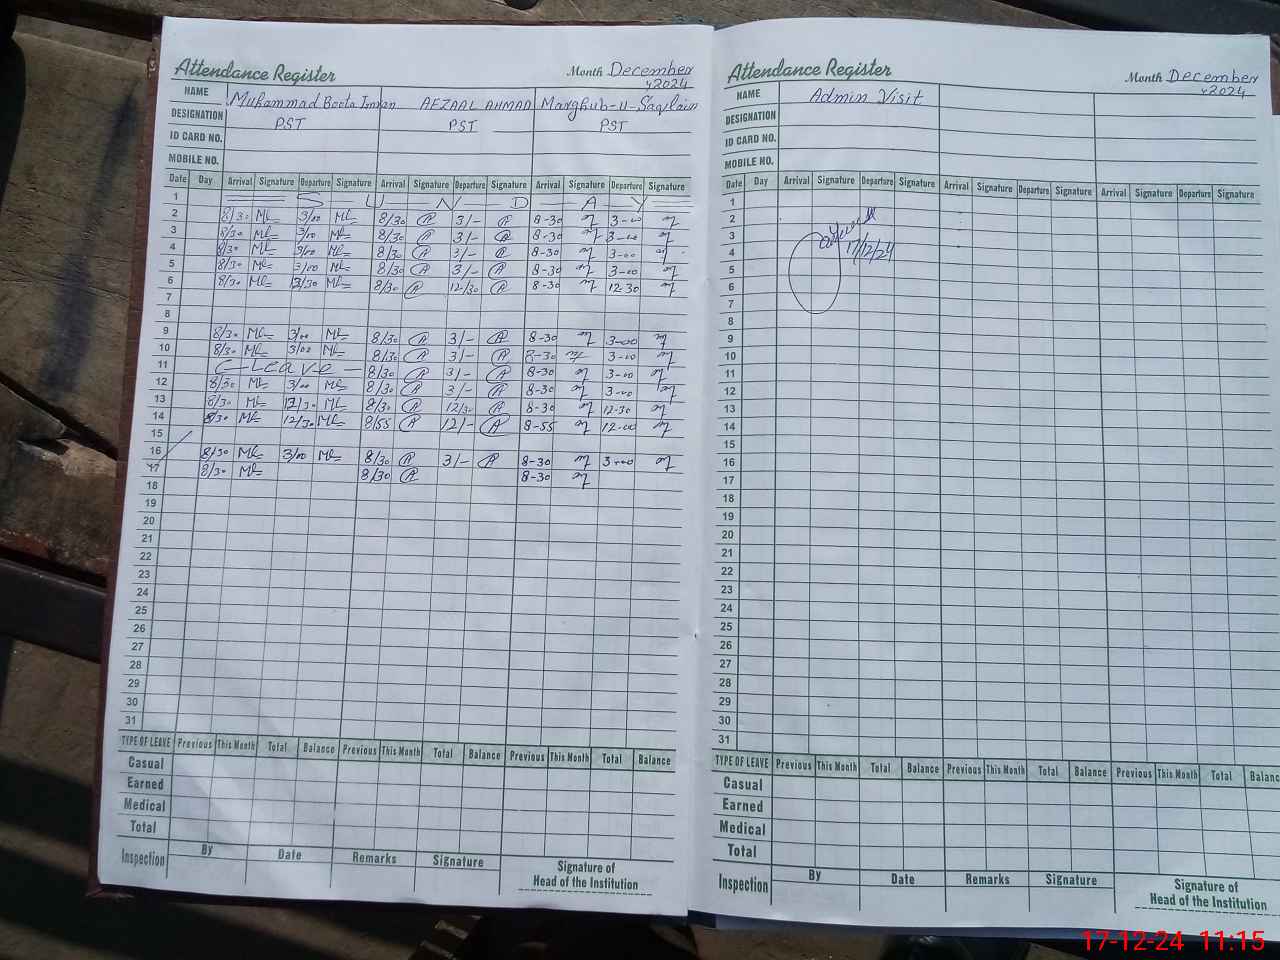 Attendance Register Month December, 2024
NAME Muhammad Boota Imran AFZAAL AHMAD Marghub-u-Saqlain
DESIGNATION PST PST PST
ID CARD NO.
MOBILE NO.
Date Day Arrival Signature Departure Signature Arrival Signature Departure Signature Arrival Signature Departure Signature
1 S U N D A Y
2 8/30 3/00 8/30 3/- 8-30 3-00
3 8/30 3/00 8/30 3/- 8-30 3-00
4 8/30 3/00 8/30 3/- 8-30 3-00
5 8/30 3/00 8/30 3/- 8-30 3-00
6 8/30 12/30 8/30 12/30 8-30 12-30
7
8
9 8/30 3/00 8/30 3/- 8-30 3-00
10 8/30 3/00 8/30 3/- 8-30 3-00
11 C-Leave 8/30 3/- 8-30 3-00
12 8/30 3/00 8/30 3/- 8-30 3-00
13 8/30 12/30 8/30 12/30 8-30 12-30
14 8/30 12/30 8/55 12/- 8-55 12-00
15
16 8/30 3/00 8/30 3/- 8-30 3-00
17 8/30 8/30 8-30
18
19
20
21
22
23
24
25
26
27
28
29
30
31
TYPE OF LEAVE Previous This Month Total Balance Previous This Month Total Balance Previous This Month Total Balance
Casual
Earned
Medical
Total
Inspection By Date Remarks Signature Signature of
Head of the Institution
Attendance Register Month December, 2024
NAME Admin Visit
DESIGNATION
ID CARD NO.
MOBILE NO.
Date Day Arrival Signature Departure Signature Arrival Signature Departure Signature Arrival Signature Departure Signature
1
2
3
4 17/12/24
5
6
7
8
9
10
11
12
13
14
15
16
17
18
19
20
21
22
23
24
25
26
27
28
29
30
31
TYPE OF LEAVE Previous This Month Total Balance Previous This Month Total Balance Previous This Month Total Balanc
Casual
Earned
Medical
Total
Inspection By Date Remarks Signature Signature of
Head of the Institution
17-12-24 11:15